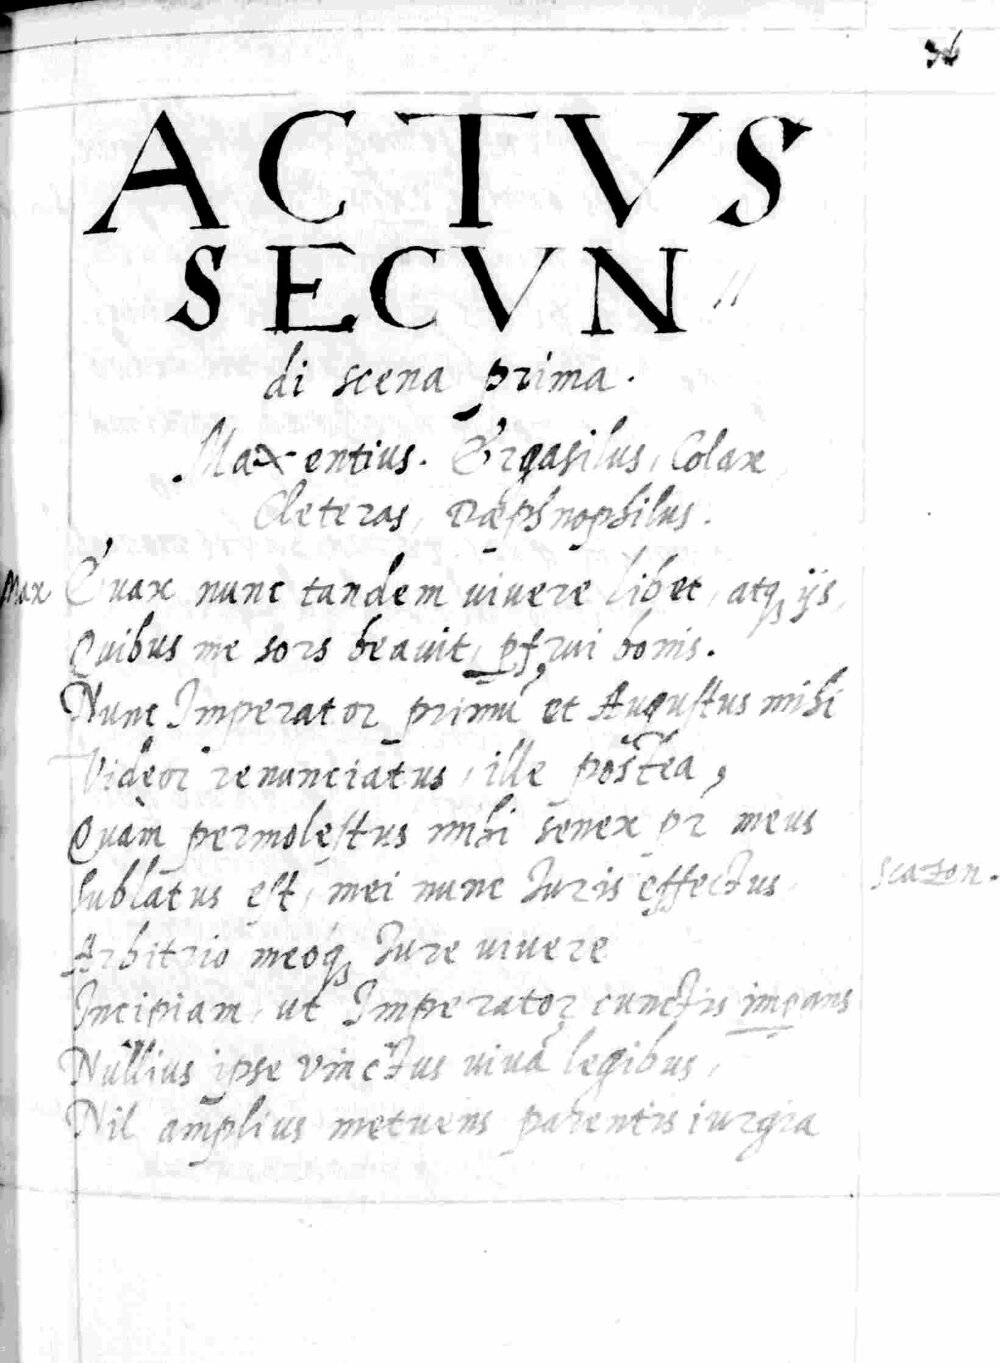 36
ACTVS
SECVN//
di scena prima.
Maxentius. Ergasilus, Colax
Cleteras, Dæpsnophilus.
Max Euax nunc tandem viuere libet, atq; ijs,
Quibus me sors beauit, pfrui bonis.
Nunc Imperator primũ et Augustus mihi
Videor renunciatus, ille postea,
Quàm permolestus mihi senex pr meus
Sublatus est, mei nunc Iuris effectus
scazon.
Arbitrio meoq; Iure viuere
Incipiam, ut Imperator cunctis impans
Nullius ipse vinctus viuã legibus,
Nil amplius metuens parentis iurgia